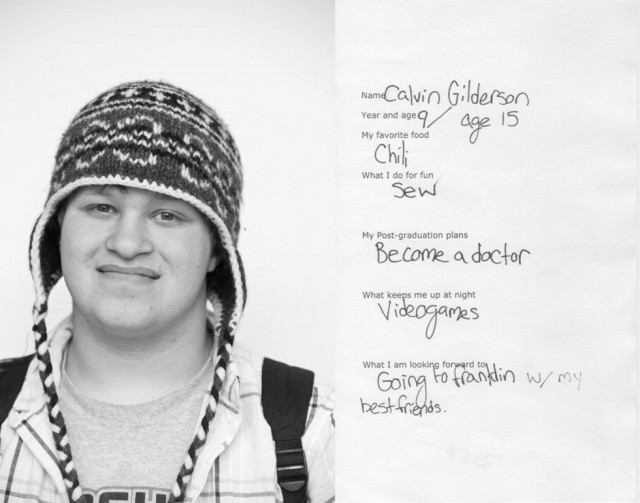 Name Calvin Gilderson
Year and age 9/ age 15
My favorite food
Chili
What I do for fun
Sew
My Post-graduation plans
Become a doctor
What keeps me up at night
Videogames
What I am looking forward to
Going to franklin w/ my
best friends.